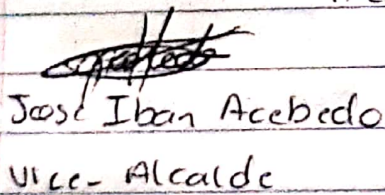 José Iban Acebedo
Vice- Alcalde